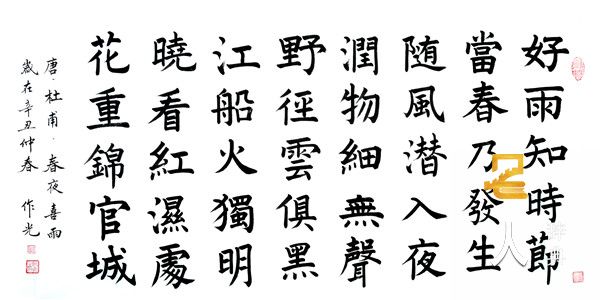 好雨知時節
當春乃發生
随風潛入夜
潤物細無聲
野徑雲俱黑
江船火獨明
曉看紅濕處
花重錦官城
唐·杜甫·春夜喜雨
歲在辛丑仲春 作光